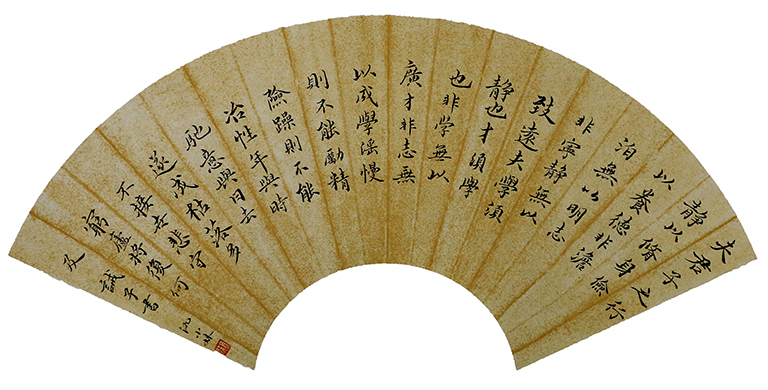 夫君子之行
静以脩身儉
以養德非澹
泊無以明志
非寧静無以
致遠夫學須
静也才須學
也非学無以
廣才非志無
以成學淫慢
則不能勵精
險躁則不能
冶性年與時
馳意與日去
遂成枯落多
不接世悲守
窮廬將復何
及 誡子書